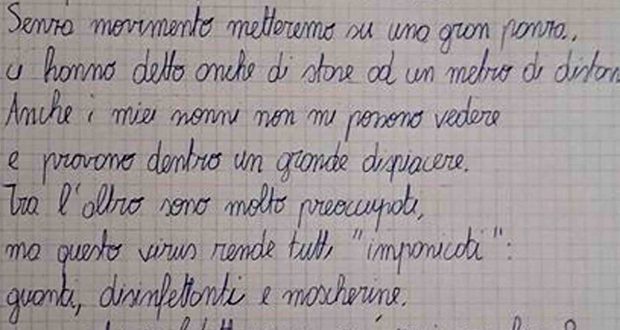 Senza movimento metteremo su una gran panza,
ci hanno detto anche di stare ad un metro di distan
Anche i miei nonni non mi possono vedere
e provano dentro un grande dispiacere.
Tra l'altro sono molto preoccupati,
ma questo virus rende tutti "impanicati":
guanti, disinfettanti e mascherine.